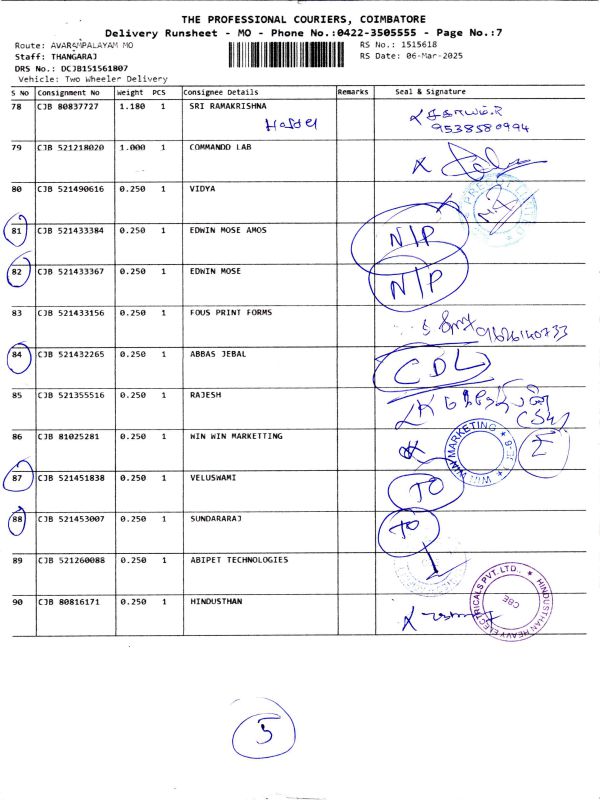 THE PROFESSIONAL COURIERS, COIMBATORE
Delivery Runsheet - MO - Phone No.:0422-3505555 - Page No.:7
Route: AVARAMPALAYAM MO
RS No.: 1515618
Staff: THANGARAJ
RS Date: 06-Mar-2025
DRS No.: DCJB151561807
Vehicle: Two Wheeler Delivery
S No Consignment No Weight PCS Consignee Details Remarks Seal & Signature
78 CJB 80837727 1.180 1 SRI RAMAKRISHNA
9538580994
79 CJB 521218020 1.000 1 COMMANDO LAB
80 CJB 521490616 0.250 1 VIDYA
81 CJB 521433384 0.250 1 EDWIN MOSE AMOS N/P
82 CJB 521433367 0.250 1 EDWIN MOSE N/P
83 CJB 521433156 0.250 1 FOUS PRINT FORMS
84 CJB 521432265 0.250 1 ABBAS JEBAL CDL
85 CJB 521355516 0.250 1 RAJESH
86 CJB 81025281 0.250 1 WIN WIN MARKETTING WIN WIN MARKETING
87 CJB 521451838 0.250 1 VELUSWAMI TO
88 CJB 521453007 0.250 1 SUNDARARAJ TO
89 CJB 521260088 0.250 1 ABIPET TECHNOLOGIES
90 CJB 80816171 0.250 1 HINDUSTHAN HINDUSTHAN HEAVY ELECTRICALS PVT. LTD., CBE
5